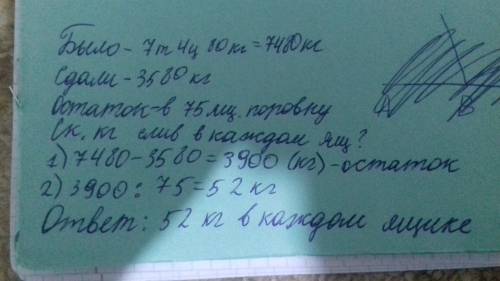 Было - 7т 4ц 80кг = 7480кг
Сдали - 3580 кг
Остаток - в 75 ящ. поровну
Ск. кг слив в каждом ящ?
1) 7480 - 3580 = 3900 (кг) - остаток
2) 3900 : 75 = 52 кг
Ответ: 52 кг в каждом ящике